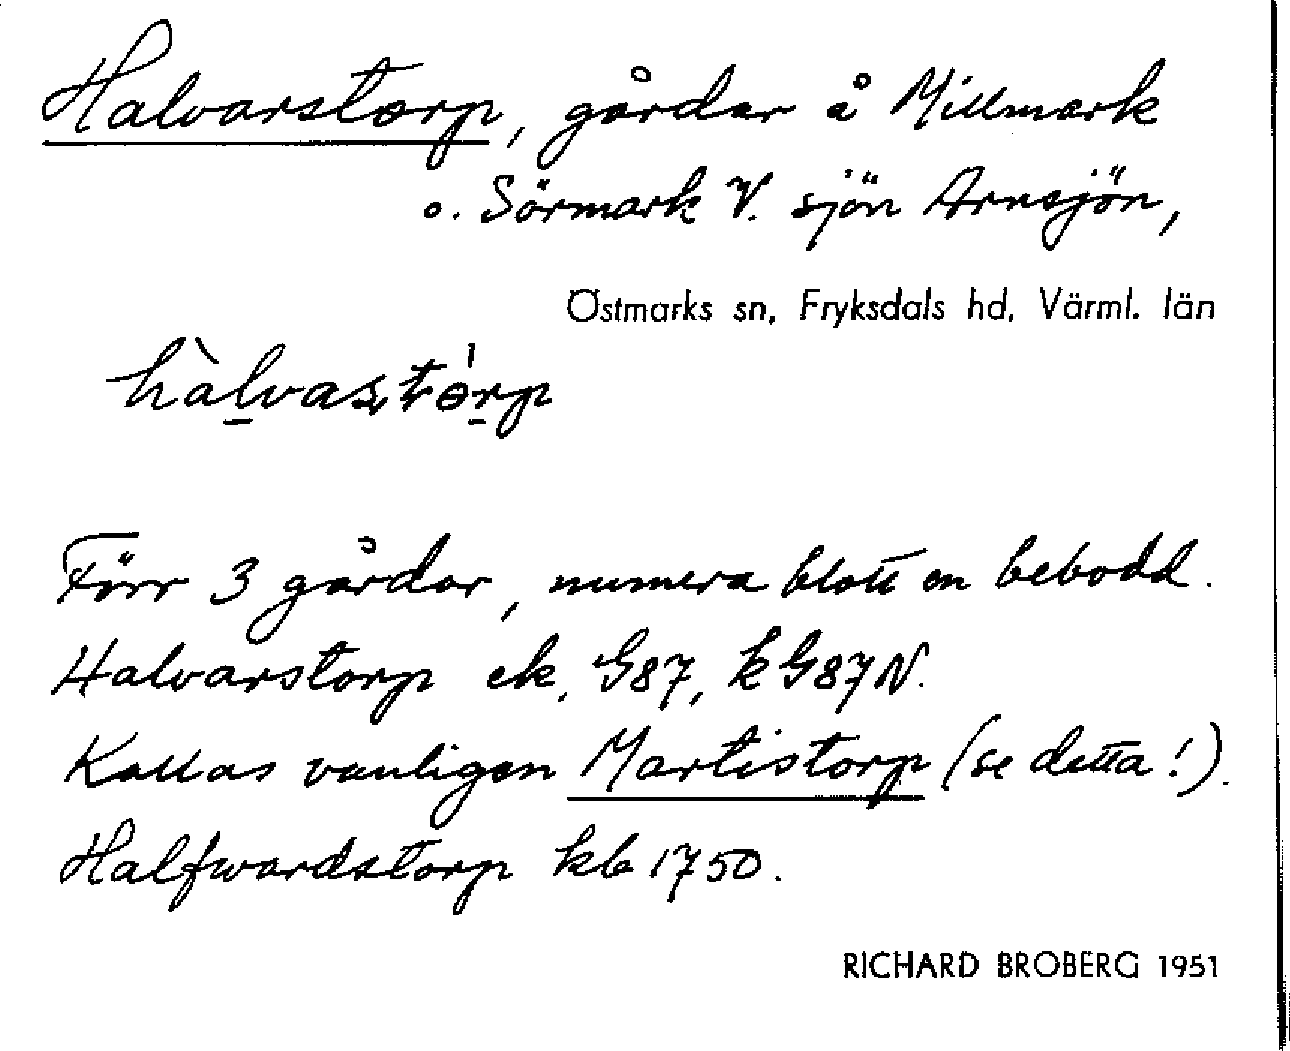 Halvarstorp, gårdar å Millmark
o. Sörmark V. sjön Arnsjön,
Östmarks sn, Fryksdals hd, Värml. län
hàlvastórp
Förr 3 gårdar, numera blott en bebodd.
Halvarstorp ek, G87, k G87N.
Kallas vanligen Martistorp (se detta!).
Halfwardstorp kb 1750.
RICHARD BROBERG 1951